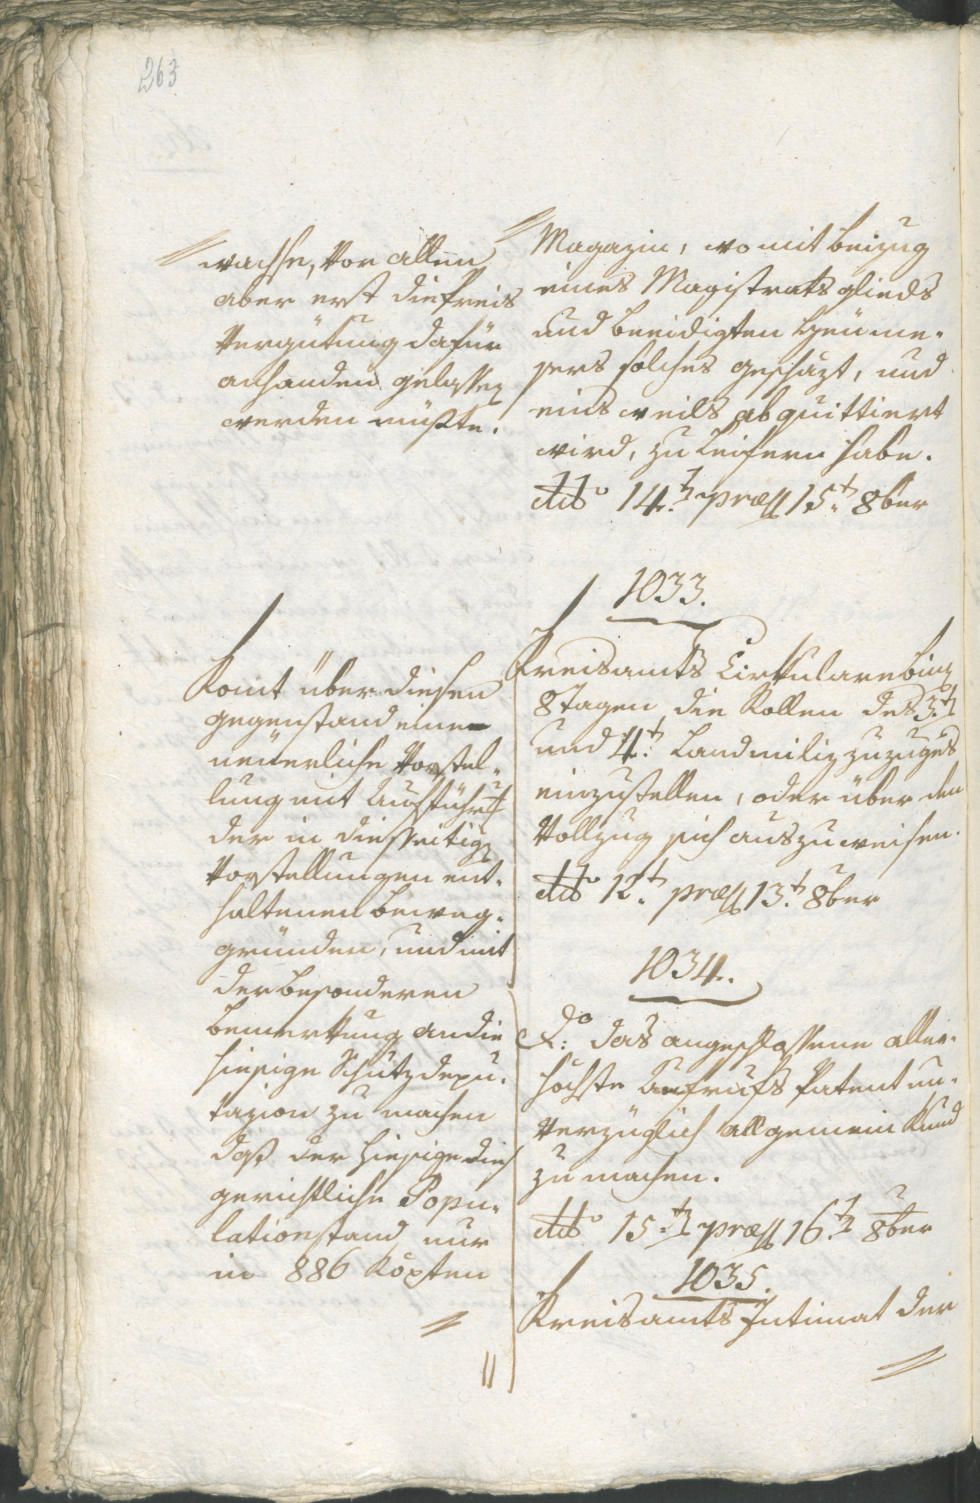 263
wachse, vor allem
aber erst die Preis
Vergütung dafür
anhanden gelassen
werden müßte.
Magazin, wo mit beizug
eines Magistrats glieds
und beeidigten
solches geschäzt, und
einsweils abquittiert
wird, zu liefern habe.
ddto 14t. præss 15t. 8ber
1033.
Kreisamts Cirkulare binn
8 tagen die Rollen des 3tn
und 4t. Landmiliz zuzuges
einzustellen, oder über den
Vollzug sich auszuweisen.
ddto 12t. præss 13t. 8ber
Komt über diesen
gegenstand eine
neuerliche Vorstel„
lung mit Ausführung
der in diesseitigen
Vorstellungen ent„
haltenen beweg„
gründen, und mit
der besonderen
bemerkung an die
hiesige Schutzdepu„
tazion zu machen
daß der hiesige
gerichtliche Popu„
lationsstand nur
in 886 Köpfen
1034.
do: das angeschlossene aller„
höchste Aufrufs Patent un„
verzüglich allgemein kund
zu machen.
ddto 15tn præss 16tn 8ber
1035.
Kreisamts Intimat der